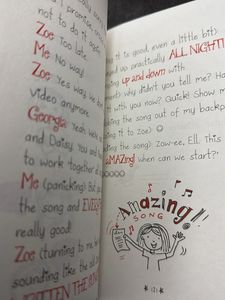 not to do it aga
Zoe Too late
Me No way!
Zoe Yes way. We
video anymore
Georgia Yeah. We're
and Daisy. You and
to work together
Me (panicking) But
the song and EVERY
really good!
Zoe (turning to me,
sounding like the
WRITTEN THE
it is good, even a little bit)
up practically ALL NIGHT!
ing up and down with
ent) why didn't you tell me? Ha
with you now? Quick! Show m
ng the song out of my backpa
g it to Zoe)
the song) Zow-ee, Ell. This
AMAZing when can we start?"
Amazing!!
SONG
121